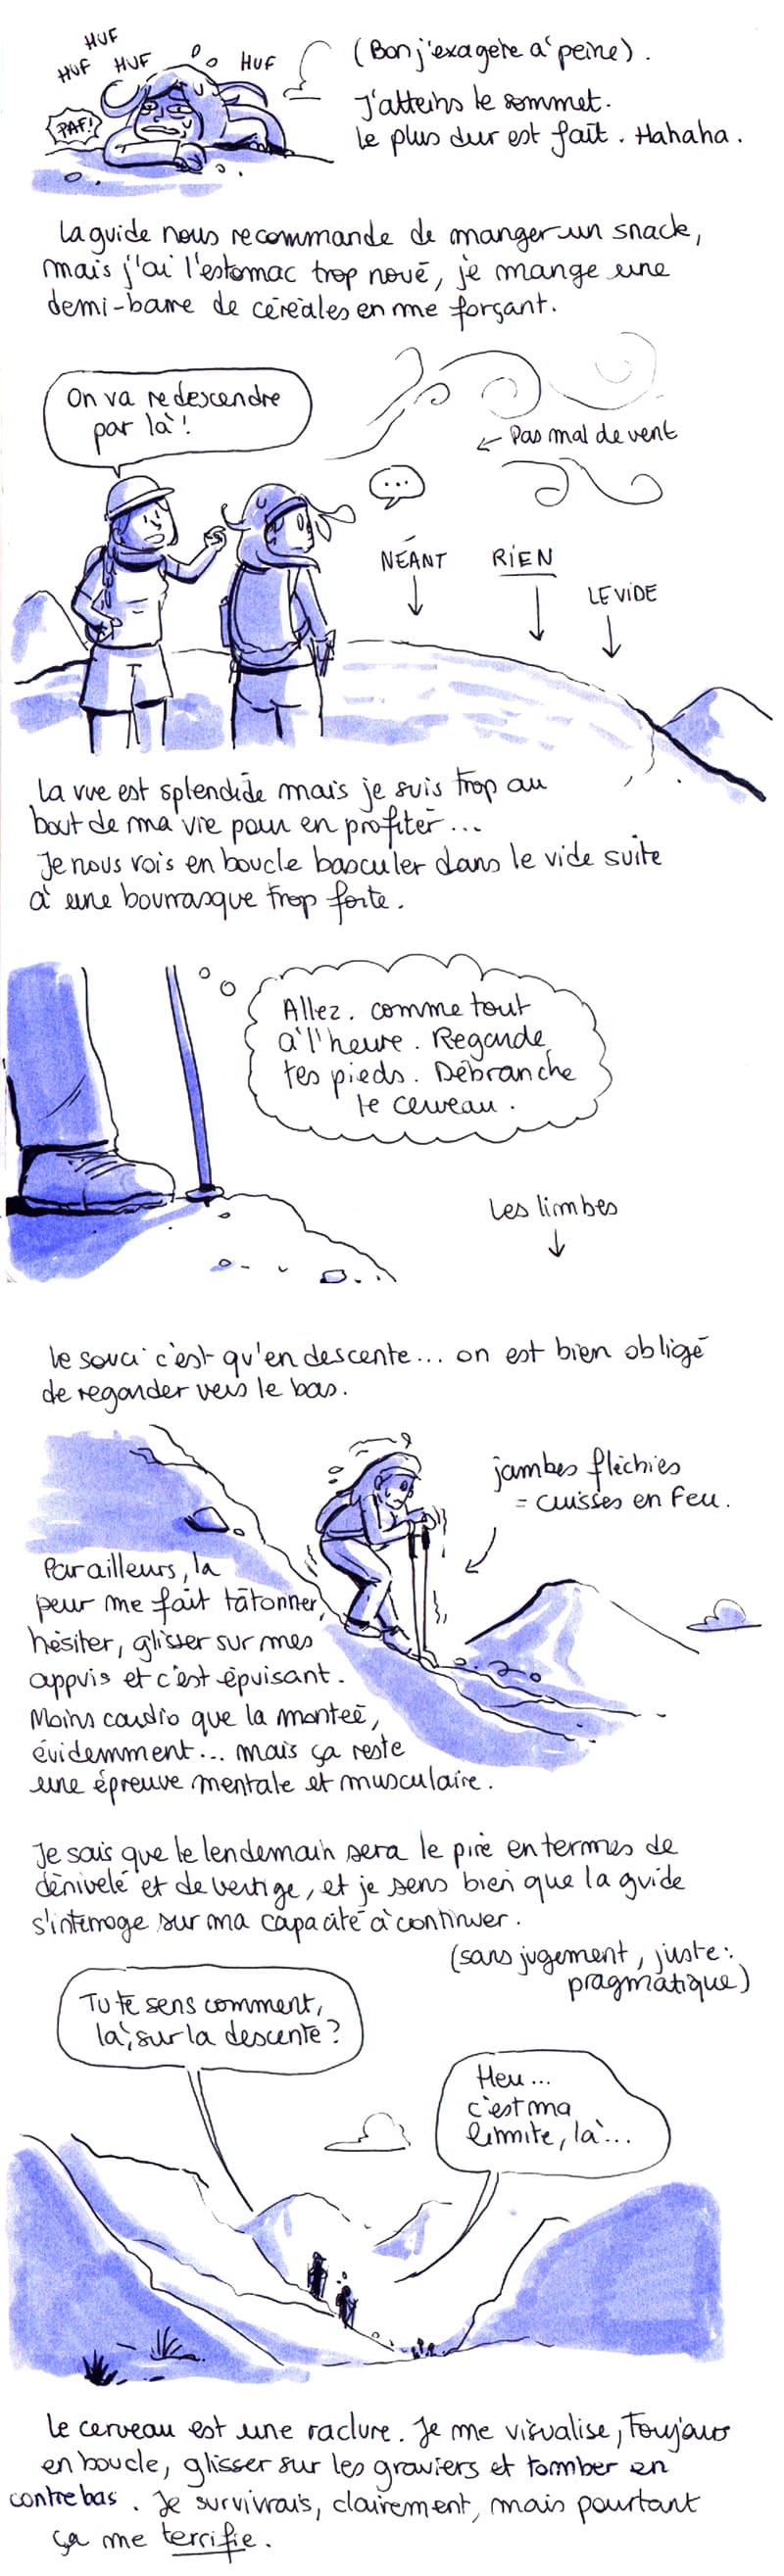 HUF
HUF
HUF
HUF
PAF!
(Bon j'exagère à peine).
J'atteins le sommet.
Le plus dur est fait. Hahaha.
La guide nous recommande de manger un snack,
mais j'ai l'estomac trop noué, je mange une
demi-barre de céréales en me forçant.
On va redescendre
par là!
Pas mal de vent
...
NÉANT
RIEN
LE VIDE
La vue est splendide mais je suis trop au
bout de ma vie pour en profiter...
Je nous vois en boucle basculer dans le vide suite
à une bourrasque trop forte.
Allez. Comme tout
à l'heure. Regarde
tes pieds. Débranche
le cerveau.
Les limbes
Le souci c'est qu'en descente... on est bien obligé
de regarder vers le bas.
jambes fléchies
= cuisses en feu.
Par ailleurs, la
peur me fait tâtonner,
hésiter, glisser sur mes
appuis et c'est épuisant.
Moins cardio que la montée,
évidemment... mais ça reste
une épreuve mentale et musculaire.
Je sais que le lendemain sera le pire en termes de
dénivelé et de vertige, et je sens bien que la guide
s'interroge sur ma capacité à continuer.
(sans jugement, juste:
pragmatique)
Tu te sens comment,
là, sur la descente?
Heu...
c'est ma
limite, là...
Le cerveau est une raclure. Je me visualise, toujours
en boucle, glisser sur les graviers et tomber en
contrebas. Je survivrais, clairement, mais pourtant
ça me terrifie.